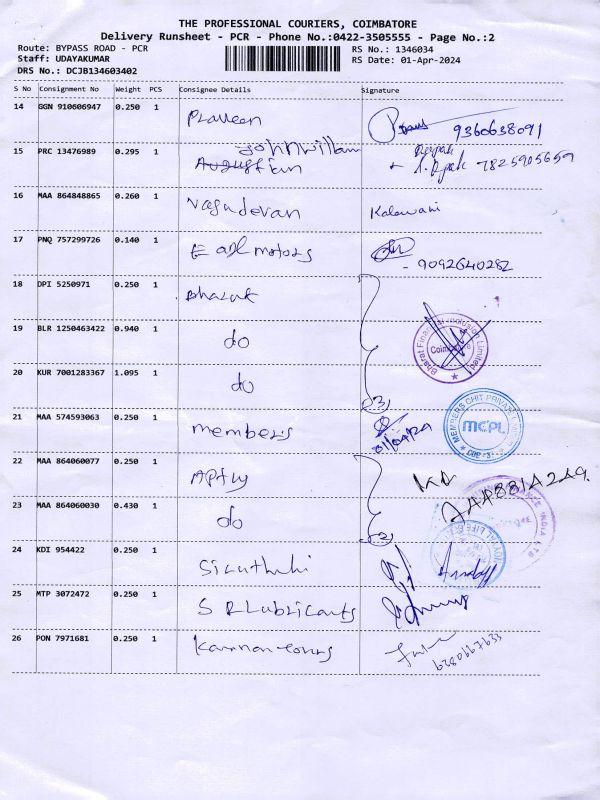 THE PROFESSIONAL COURIERS, COIMBATORE
Delivery Runsheet - PCR - Phone No.:0422-3505555 - Page No.:2
Route: BYPASS ROAD - PCR RS No.: 1346034
Staff: UDAYAKUMAR RS Date: 01-Apr-2024
DRS No.: DCJB134603402
S No Consignment No Weight PCS Consignee Details Signature
14 GGN 910606947 0.250 1 Praveen 9360638091
15 PRC 13476989 0.295 1 John william
7825905659
16 MAA 864848865 0.260 1 Vasudevan Kalawani
17 PNQ 757299726 0.140 1 E axl motors
- 9092640282
18 DPI 5250971 0.250 1 Bharat
19 BLR 1250463422 0.940 1 do
Bharat Financial Inclusion Limited
20 KUR 7001283367 1.095 1 do
(3)
21 MAA 574593063 0.250 1 members 01/04/24
MEMBERS CHIT PRIVATE
MCPL
22 MAA 864060077 0.250 1 Aptly
AAP8814249.
23 MAA 864060030 0.430 1 do
(2)
24 KDI 954422 0.250 1 Siruthuli
25 MTP 3072472 0.250 1 S R Lubricants
26 PON 7971681 0.250 1 Kannan